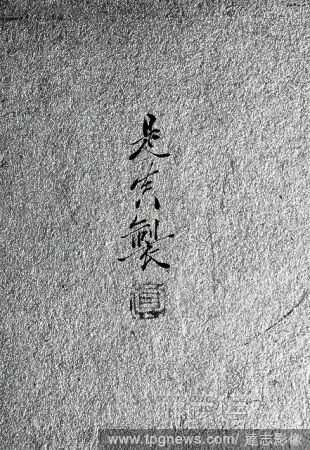 是真製
www.tpgnews.com/ 達志影像